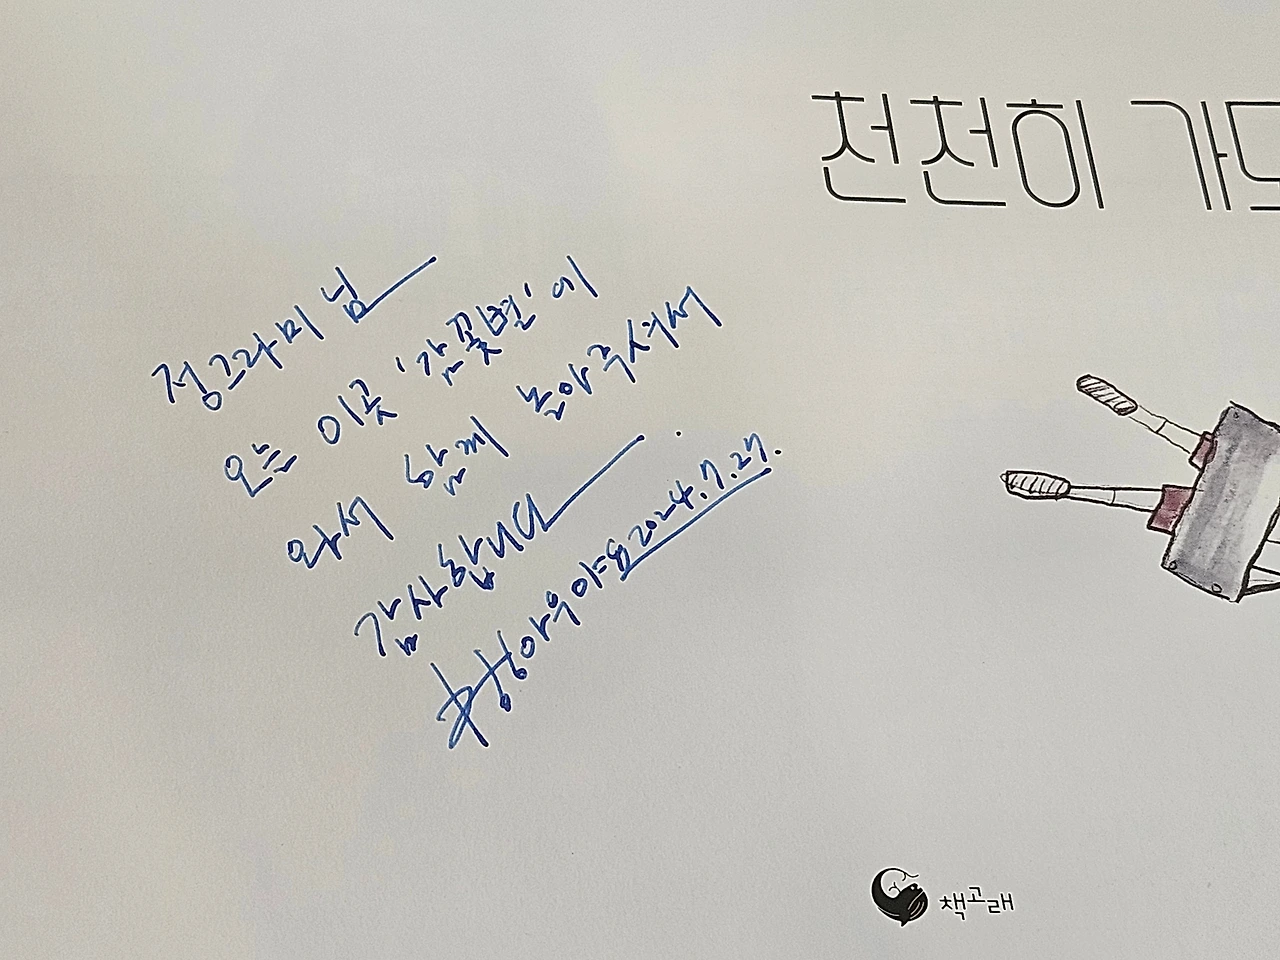 천천히 가도
정그라미 님
오늘 이곳 '감꽃별'에
와서 함께 놀아주셔서
감사합니다
2024.7.27.
책고래